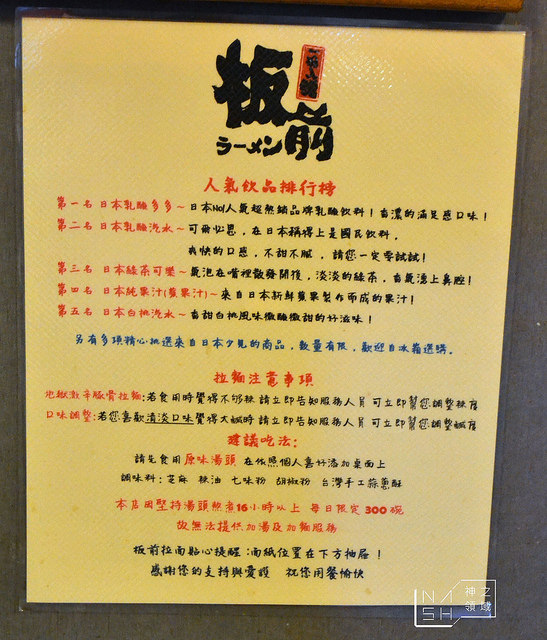 板前
ラーメン
人氣飲品排行榜
第一名 日本乳酸多多~日本NO1人氣超熱銷品牌乳酸飲料!香濃的滿足感口味!
第二名 日本乳酸汽水~可爾必思,在日本稱得上是國民飲料,
爽快的口感,不甜不膩,請您一定要試試!
第三名 日本綠茶可樂~氣泡在嘴裡散發開後,淡淡的綠茶,香氣湧上鼻腔!
第四名 日本純果汁(蘋果汁)~來自日本新鮮蘋果製作而成的果汁!
第五名 日本白桃汽水~香甜白桃風味微酸微甜的好滋味!
另有多項精心挑選來自日本少見的商品,數量有限,歡迎自冰箱選購。
拉麵注意事項
地獄激辛豚骨拉麵:若食用時覺得不夠辣 請立即告知服務人員 可立即幫您調整辣度
口味調整:若您喜歡清淡口味覺得太鹹時 請立即告知服務人員 可立即幫您調整鹹度
建議吃法:
請先食用 原味湯頭 在依照個人喜好添加桌面上
調味料:芝麻 辣油 七味粉 胡椒粉 台灣手工蒜蔥酥
本店因堅持湯頭熬煮16小時以上 每日限定 300碗
故無法提供加湯及加麵服務
板前拉面貼心提醒:面紙位置在下方抽屜!
感謝您的支持與愛護 祝您用餐愉快
NASH
神之領域